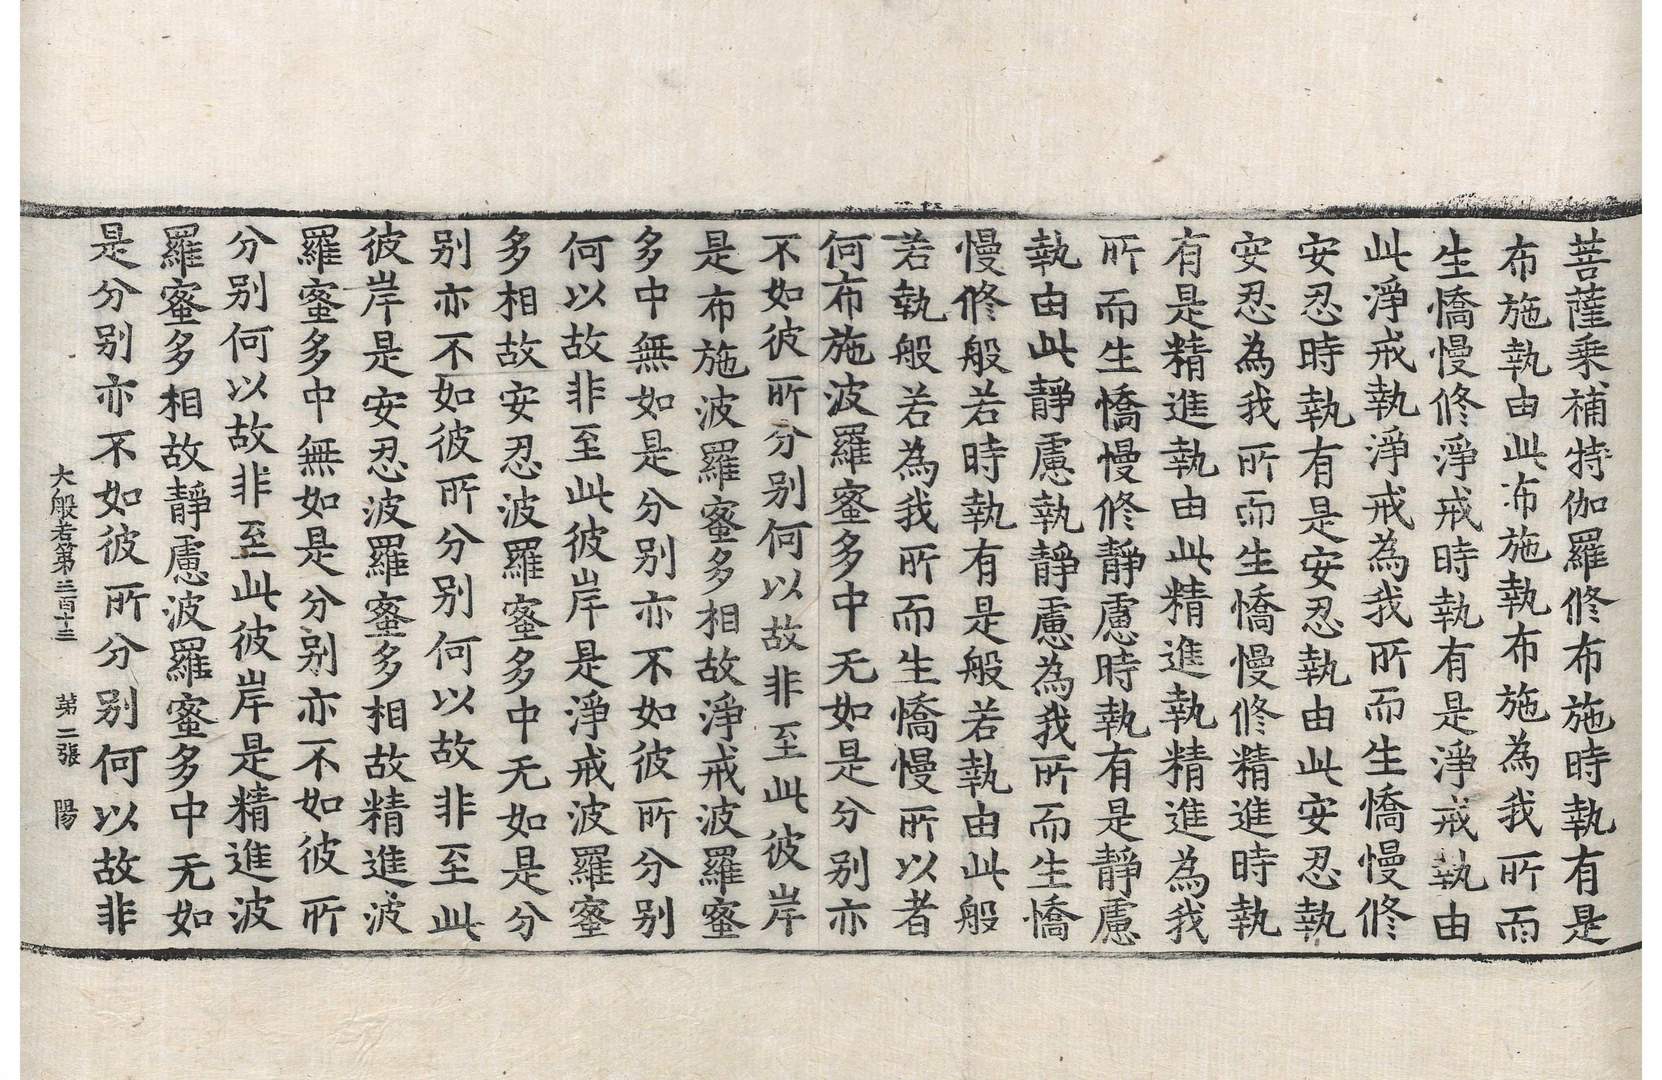 菩薩乗補特伽羅修布施時執有是
布施執由此布施執布施為我所而
生憍慢修淨戒時執有是淨戒執由
此淨戒執淨戒為我所而生憍慢修
安忍時執有是安忍執由此安忍執
安忍為我所而生憍慢修精進時執
有是精進執由此精進執精進為我
所而生憍慢修靜慮時執有是靜慮
執由此靜慮執靜慮為我所而生憍
慢修般若時執有是般若執由此般
若執般若為我所而生憍慢所以者
何布施波羅蜜多中无如是分别亦
不如彼所分别何以故非至此彼岸
是布施波羅蜜多相故淨戒波羅蜜
多中無如是分别亦不如彼所分别
何以故非至此彼岸是淨戒波羅蜜
多相故安忍波羅蜜多中无如是分
别亦不如彼所分别何以故非至此
彼岸是安忍波羅蜜多相故精進波
羅蜜多中無如是分别亦不如彼所
分别何以故非至此彼岸是精進波
羅蜜多相故靜慮波羅蜜多中无如
是分别亦不如彼所分别何以故非
大般若第三百十三 第二張 陽